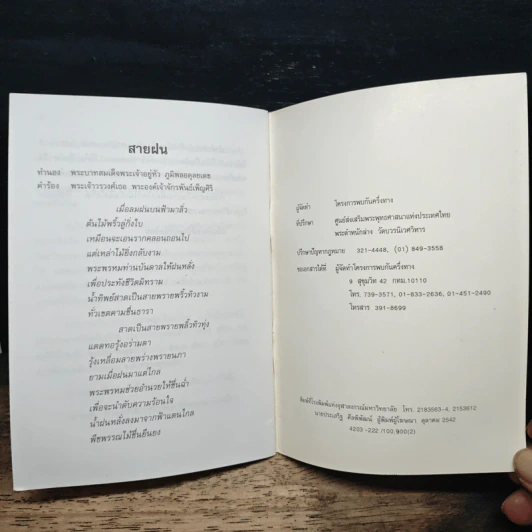 สายฝน
ทำนอง พระบาทสมเด็จพระเจ้าอยู่หัว ภูมิพลอดุลยเดช
คำร้อง พระเจ้าวรวงศ์เธอ พระองค์เจ้าจักรพันธ์เพ็ญศิริ
เมื่อลมฝนบนฟ้ามาลิ่ว
ต้นไม้พริ้วลู่กิ่งใบ
เหมือนจะเอนรากคลอนถอนไป
แต่เหล่าไม้ยิ่งกลับงาม
พระพรหมท่านบันดาลให้ฝนหลั่ง
เพื่อประทังชีวิตมิทราม
น้ำทิพย์สาดเป็นสายพรายพริ้วทิวงาม
ทั่วเขตคามชื่นธารา
สาดเป็นสายพรายพลิ้วทิวทุ่ง
แดดทอรุ้งอร่ามตา
รุ้งเหลื่อมลายพร่างพรายนภา
ยามเมื่อฝนมาแต่ไกล
พระพรหมช่วยอำนวยให้ชื่นฉ่ำ
เพื่อจะนำดับความร้อนใจ
น้ำฝนหลั่งลงมาจากฟ้าแดนไกล
พืชพรรณไม้ชื่นยืนยง
ผู้จัดทำ โครงการพบกันครึ่งทาง
ที่ปรึกษา ศูนย์ส่งเสริมพระพุทธศาสนาแห่งประเทศไทย
พระตำหนักล่าง วัดบวรนิเวศวิหาร
ปรึกษาปัญหากฎหมาย 321-4448, (01) 849-3558
ขอเอกสารได้ที่ ผู้จัดทำโครงการพบกันครึ่งทาง
9 สุขุมวิท 42 กทม.10110
โทร. 739-3571, 01-833-2636, 01-451-2490
โทรสาร 391-8699
พิมพ์ที่โรงพิมพ์แห่งจุฬาลงกรณ์มหาวิทยาลัย โทร. 2183563-4, 2153612
ผู้พิมพ์ผู้โฆษณา ตุลาคม 2542
4203-222 /100,900(2)